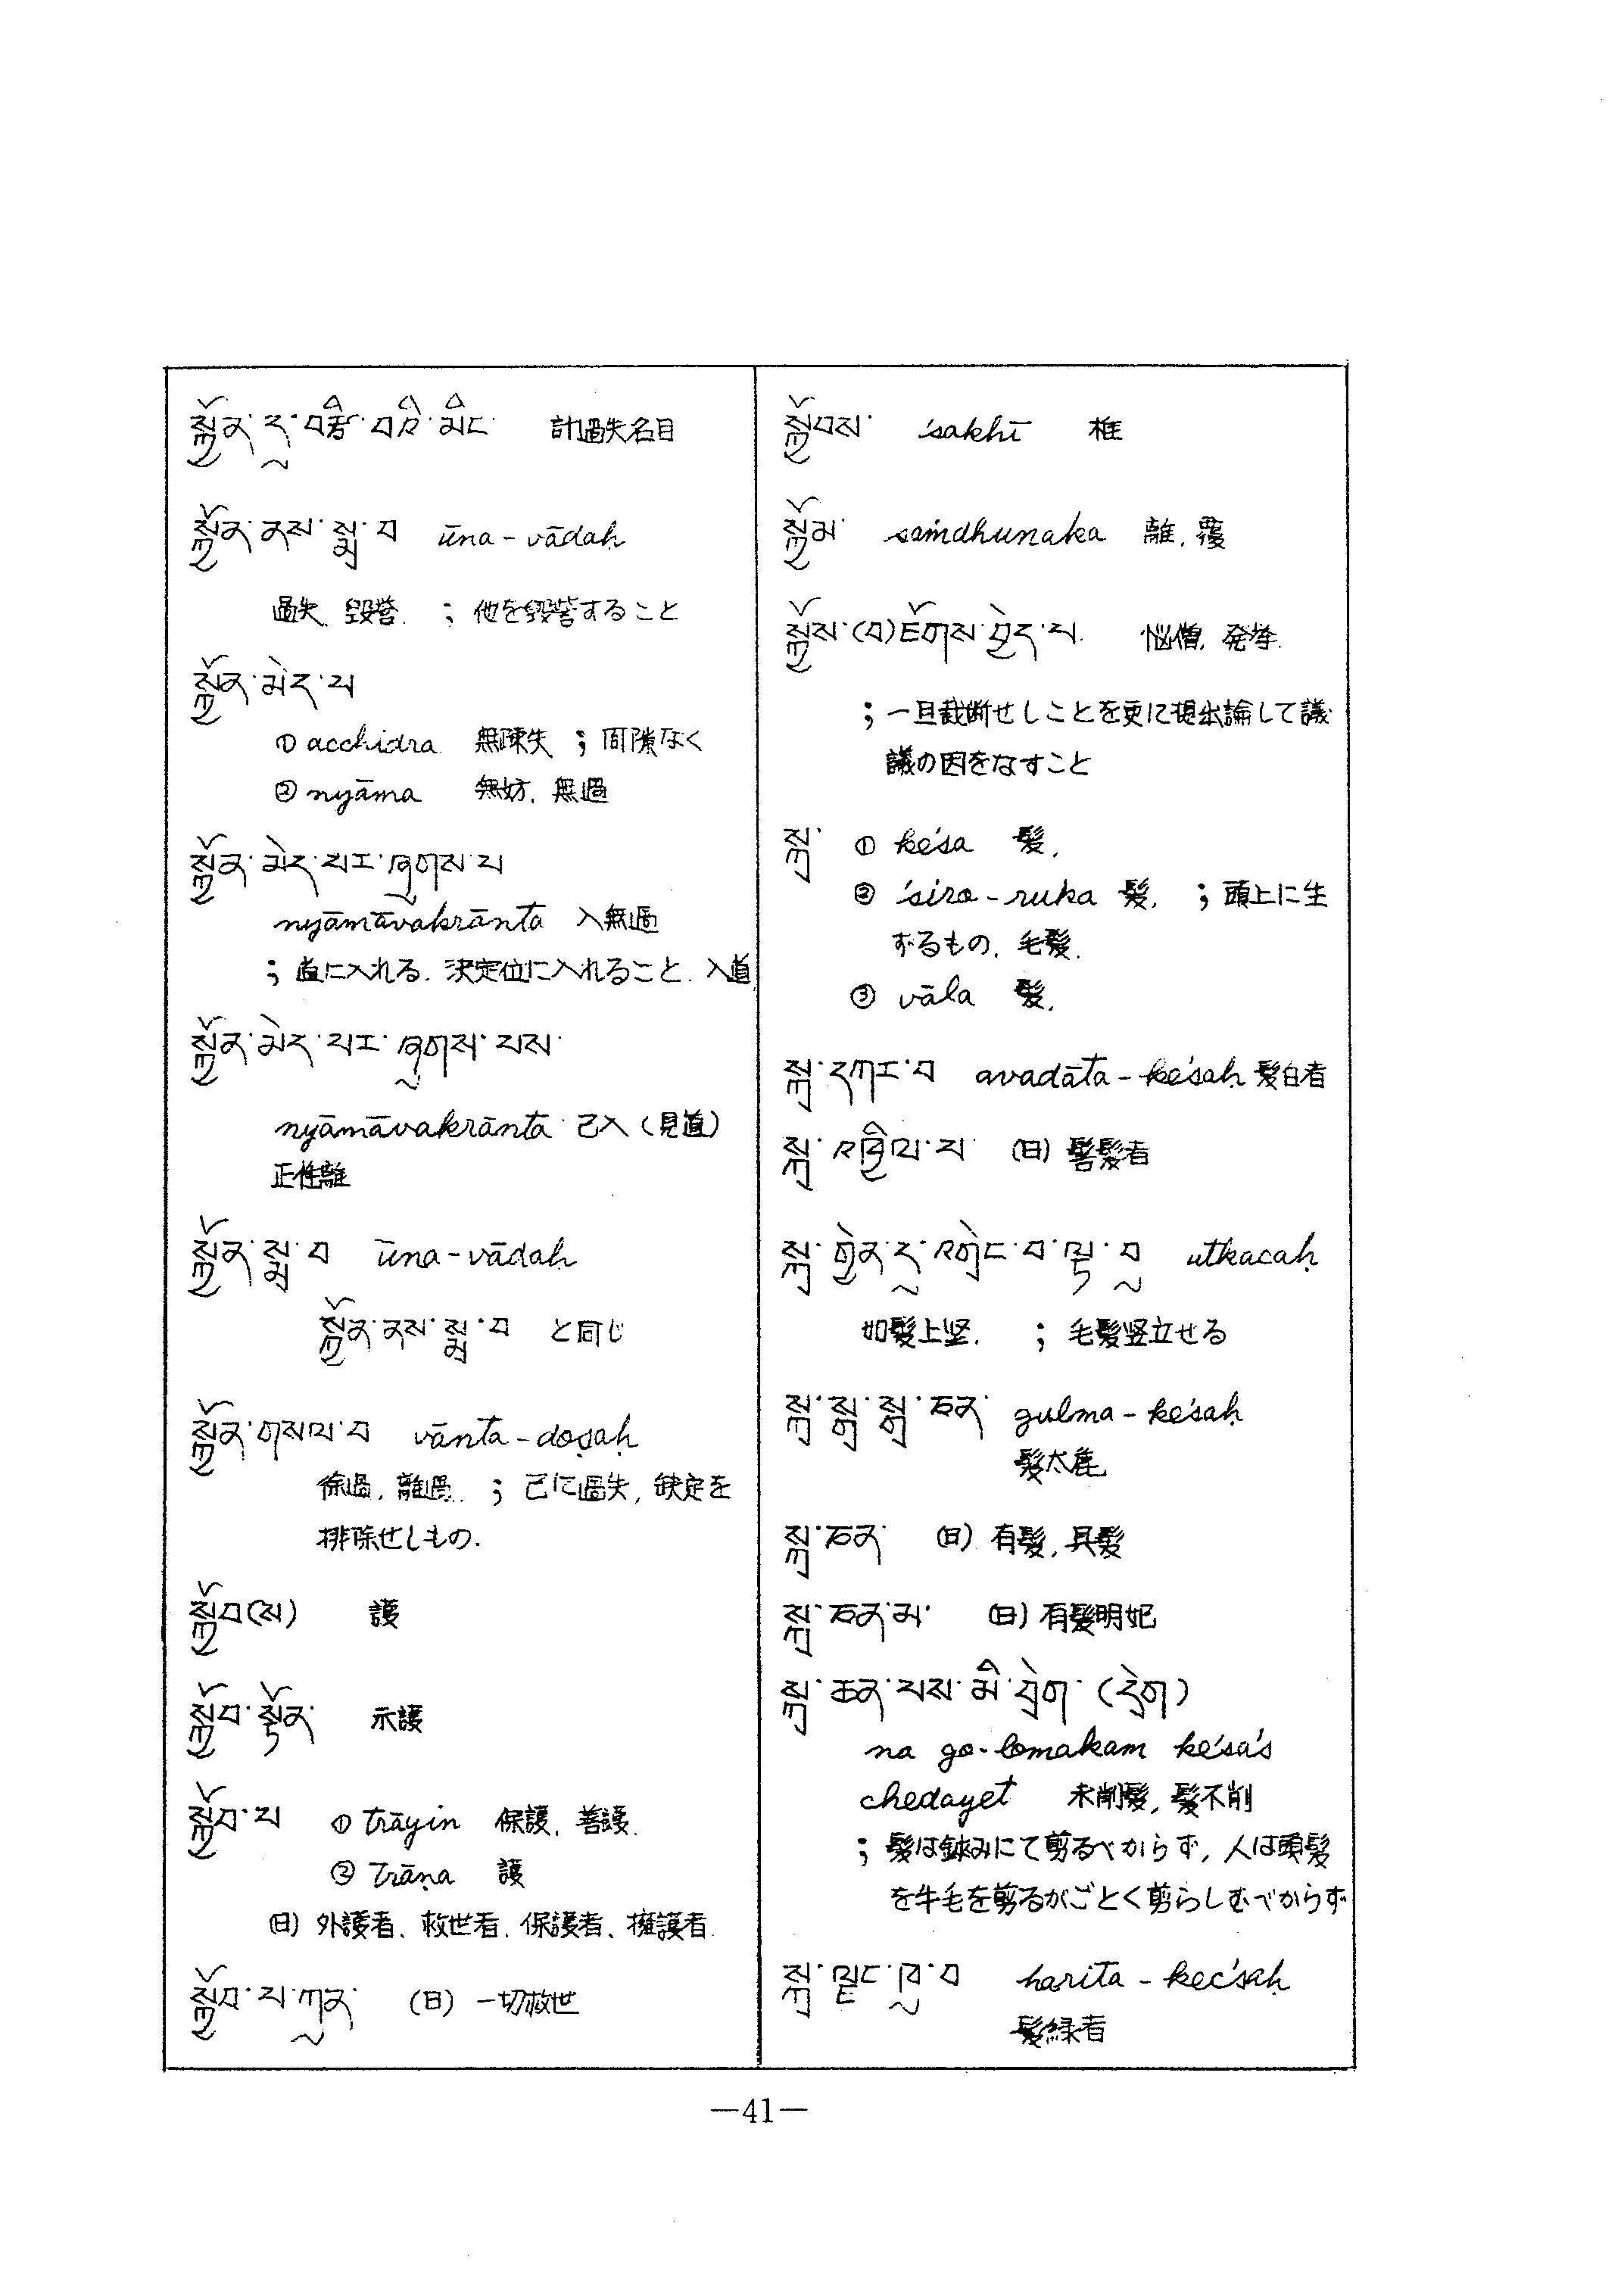 སྐྱོན་དུ་བརྩི་བའི་མིང་ 計過失名目
སྐྱོན་ནས་སྨྲ་བ ūna-vādaḥ
過失, 毀呰. ; 他を毀呰すること
སྐྱོན་མེད་པ
① acchidra 無陳失 ; 間隙なく
② nyāma 無妨, 無過
སྐྱོན་མེད་པར་ཞུགས་པ
nyāmāvakrānta 入無過
; 道に入れる. 決定位に入れること. 入道
སྐྱོན་མེད་པར་ཞུགས་པས་
nyāmāvakrānta 已入 (見道)
正性離
སྐྱོན་སྨྲ་བ ūna-vādaḥ
སྐྱོན་ནས་སྨྲ་བ と同じ
སྐྱོན་གསལ་བ vānta-doṣaḥ
徐過, 離過. ; 己に過失, 缺定を
排除せしもの.
སྐྱོབ(ས) 護
སྐྱོབ་སྟོན་ 示護
སྐྱོབ་པ ① trāyin 保護, 善護.
② trāṇa 護
(日) 外護者、救世者、保護者、擁護者
སྐྱོབ་པ་ཀུན་ (日) 一切救世
སྐྱོབས་ śakhī 框
སྐྱོམ་ saṁdhunaka 離, 覆
སྐྱོས་(བ)ཛོགས་བྱེད་པ. 悩僧, 発挙.
; 一旦裁断せしことを更に提出論して議
議の因をなすこと
སྐྲ་ ① keśa 髪.
② śiro-ruka 髪. ; 頭上に生
ずるもの. 毛髪.
③ vāla 髪.
སྐྲ་དཀར་བ avadāta-keśaḥ 髪白者
སྐྲ་འཁྱིལ་པ (日) 髻髪者
སྐྲ་གྱེན་དུ་འགྲེང་བ་ལྟ་བུ utkacaḥ
如髪上竪. ; 毛髪竪立せる
སྐྲ་སྒྲ་སྒྲ་ཅན་ gulma-keśaḥ
髪太麁
སྐྲ་ཅན་ (日) 有髪, 具髪
སྐྲ་ཅན་མ་ (日) 有髪明妃
སྐྲ་ཆན་པས་མི་བྲེག་ (དྲེག)
na go-lomakam keśaś
chedayet 未削髪, 髪不削
; 髪は鋏みにて剪るべからず, 人は頭髪
を牛毛を剪るがごとく剪らしむべからず
སྐྲ་ལྗང་ཁུ་བ harita-kecśaḥ
髪緑者
—41—